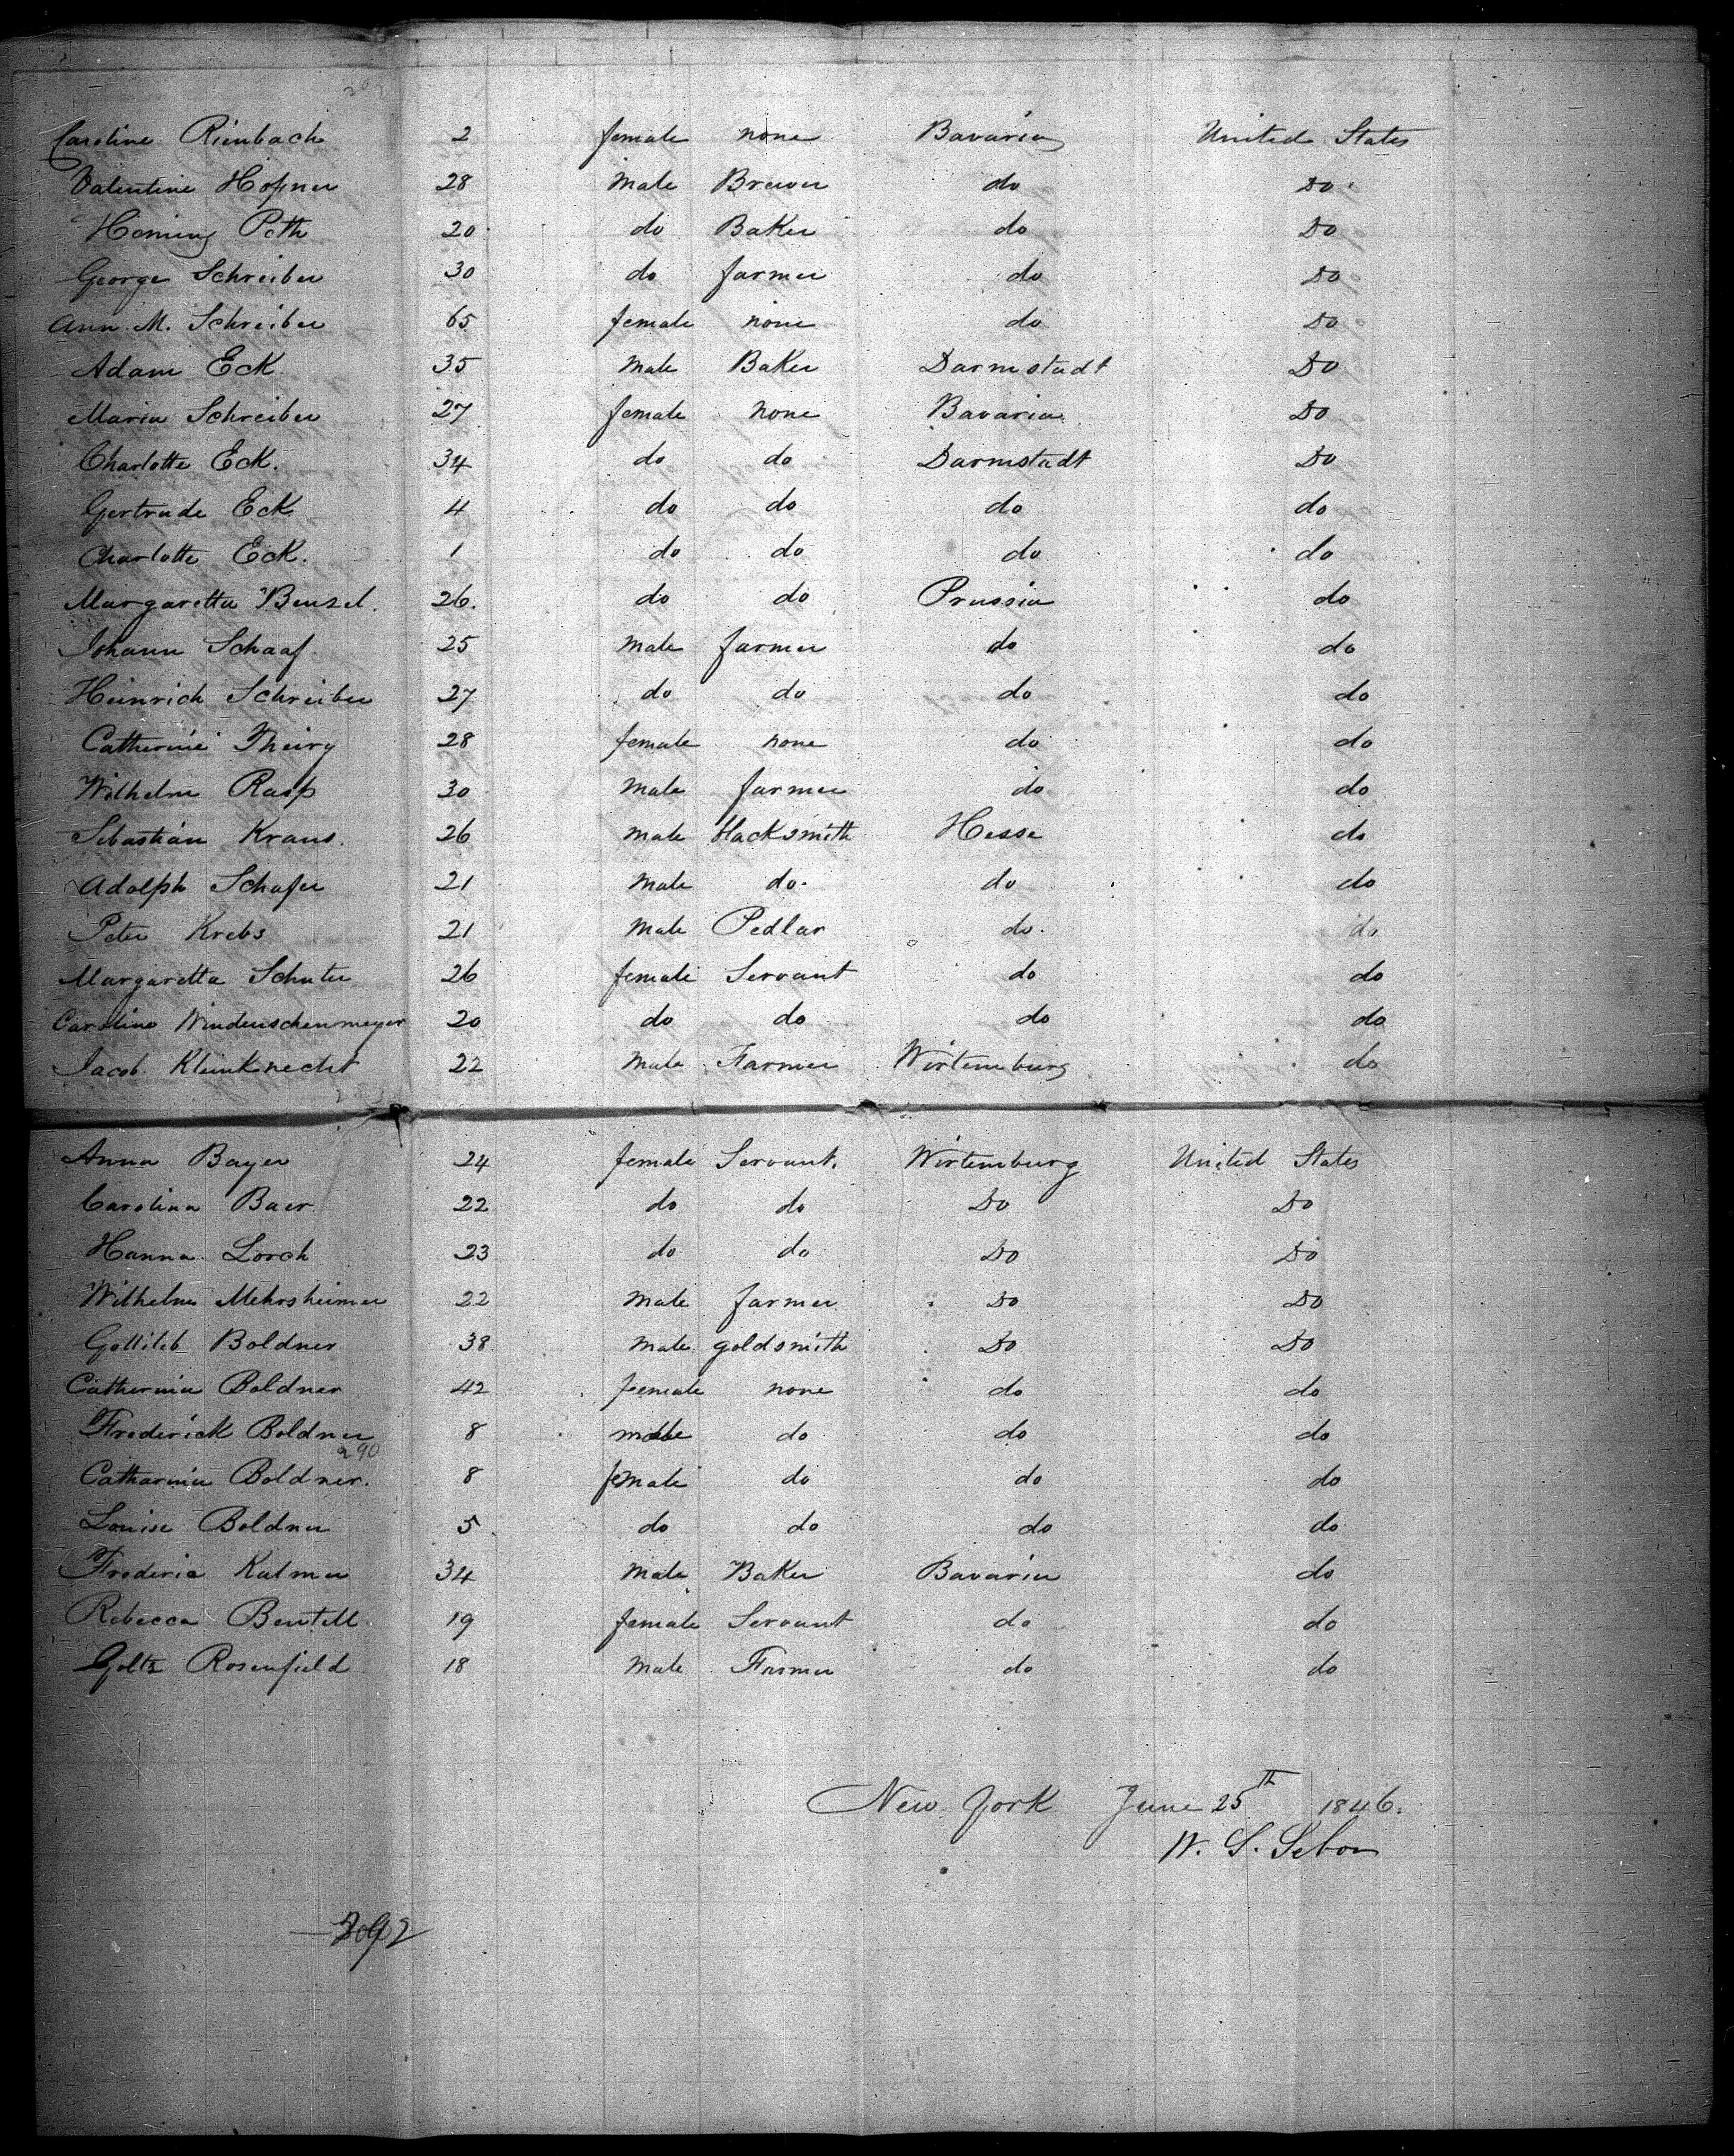 Caroline Rienbach 2 female none Bavaria United States
Valentine Hofner 28 male Brewer do Do
Heming Peth 20 do Baker do Do
George Schreiber 30 do farmer do Do
Ann M. Schreiber 65 female none do Do
Adam Eck 35 male Baker Darmstadt Do
Maria Schreiber 27 female none Bavaria Do
Charlotte Eck. 34 do do Darmstadt Do
Gertrude Eck 4 do do do do
Charlotte Eck. 1 do do do do
Margaretta Benzel. 26. do do Prussia do
Johann Schaaf 25 male farmer do do
Heinrich Schreiber 27 do do do do
Catherine Theiry 28 female none do do
Wilhelm Rasp 30 male farmer do do
Sebastian Kraus. 26 male blacksmith Hesse do
Adolph Schafer 21 male do. do do
Peter Krebs 21 male Pedlar do. do
Margaretta Schuter 26 female Servant do do
Caroline Windenschenmeyer 20 do do do do
Jacob Kleinknecht 22 male Farmer Wirtemburg do
Anna Bayer 24 female Servant. Wirtemburg United States
Carolina Baer 22 do do Do Do
Hanna Lorch 23 do do Do Do
Wilhelm Mehrsheimer 22 male farmer Do Do
Gottlieb Boldner 38 male goldsmith Do Do
Catherina Boldner 42 female none do do
Frederick Boldner 8 male do do do
290
Catharina Boldner. 8 female do do do
Louise Boldner 5 do do do do
Frederic Kalmer 34 male Baker Bavaria do
Rebecca Bentell 19 female Servant do do
Goltz Rosenfield 18 male Farmer do do
New York June 25th 1846.
W. S. Sebor